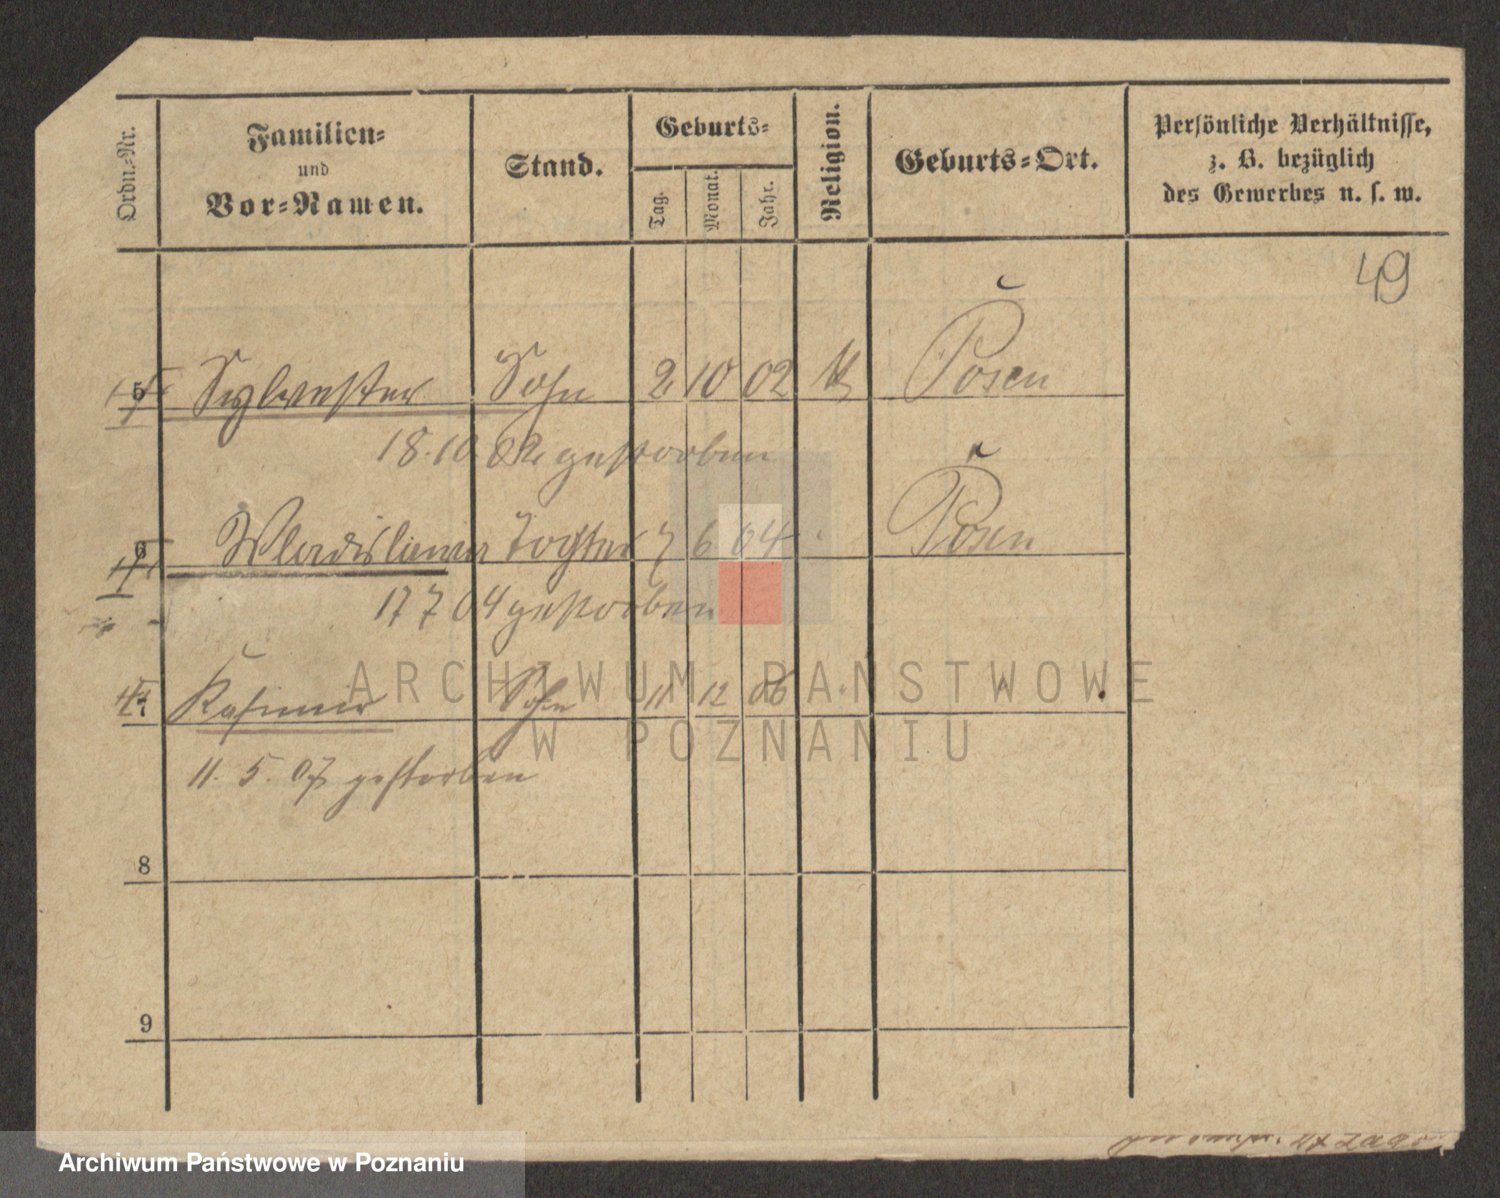 Ordn.=Nr.
Familien=
und
Vor=Namen.
Stand.
Geburts=
Tag.
Monat.
Jahr.
Religion.
Geburts=Ort.
Persönliche Verhältnisse,
z. B. bezüglich
des Gewerbes u. s. w.
49
5 Sylvester Sohn 2 10 02 K Posen
18.10.02 gestorben
6 Wladislawa Tochter 7 6 04 Posen
17 7 04 gestorben
7 Kasimir Sohn 11 12 06
11. 5. 07 gestorben
8
9
ARCHIWUM PAŃSTWOWE
W POZNANIU
Archiwum Państwowe w Poznaniu